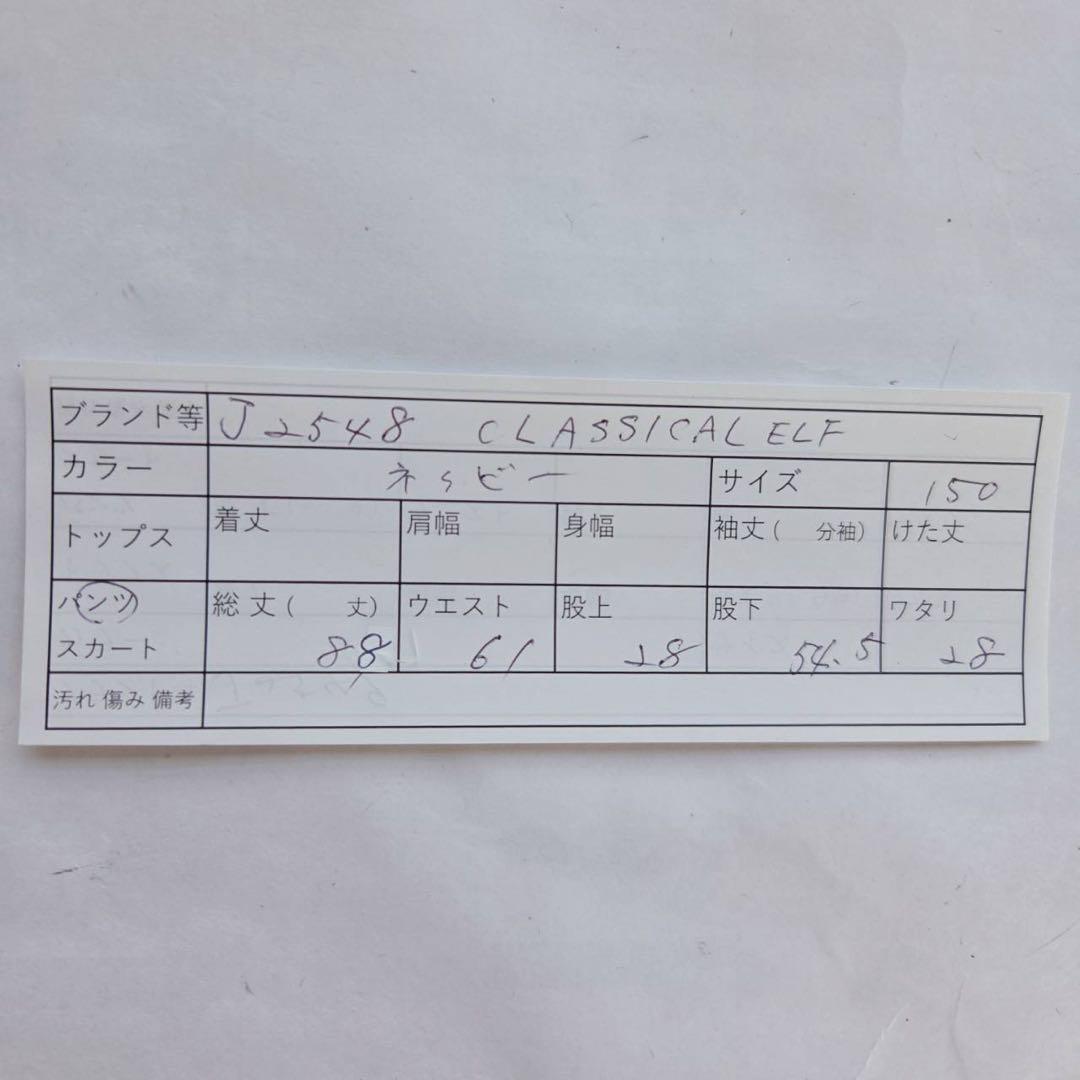 ブランド等 J2548 CLASSICAL ELF
カラー ネッビー サイズ 150
トップス 着丈 肩幅 身幅 袖丈( 分袖) けた丈
パンツ 総丈( 丈) ウエスト 股上 股下 ワタリ
スカート 88 61 28 54.5 28
汚れ 傷み 備考